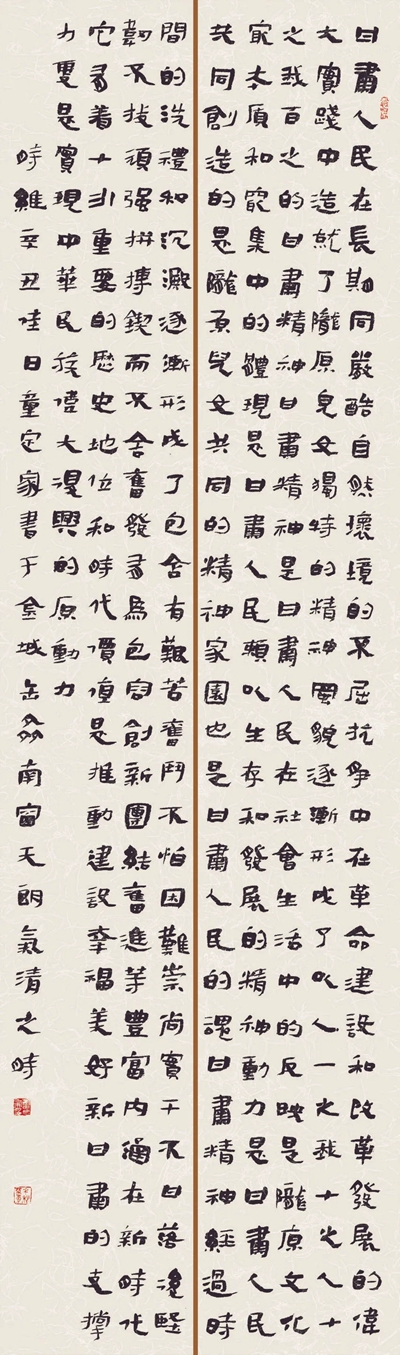 甘肅人民在長期同嚴酷自然環境的不屈抗爭中在革命建設和改革發展的偉
大實踐中造就了隴原兒女獨特的精神風貌逐漸形成了以人一之我十之人十
之我百之的甘肅精神甘肅精神是甘肅人民在社會生活中的反映是隴原文化
最本質和最集中的體現是甘肅人民賴以生存和發展的精神動力是甘肅人民
共同創造的是隴原兒女共同的精神家園也是甘肅人民的魂甘肅精神經過時
間的洗禮和沉澱逐漸形成了包含有艱苦奮鬥不怕困難崇尚實干不甘落後堅
韌不拔頑強拼搏鍥而不舍奮發有為包容創新團結奮進等豐富內涵在新時代
它有着十分重要的歷史地位和時代價值是推動建設幸福美好新甘肅的支撐
力更是實現中華民族偉大復興的原動力
時維辛丑佳日童定家書于金城缶龠南窗天朗氣清之時